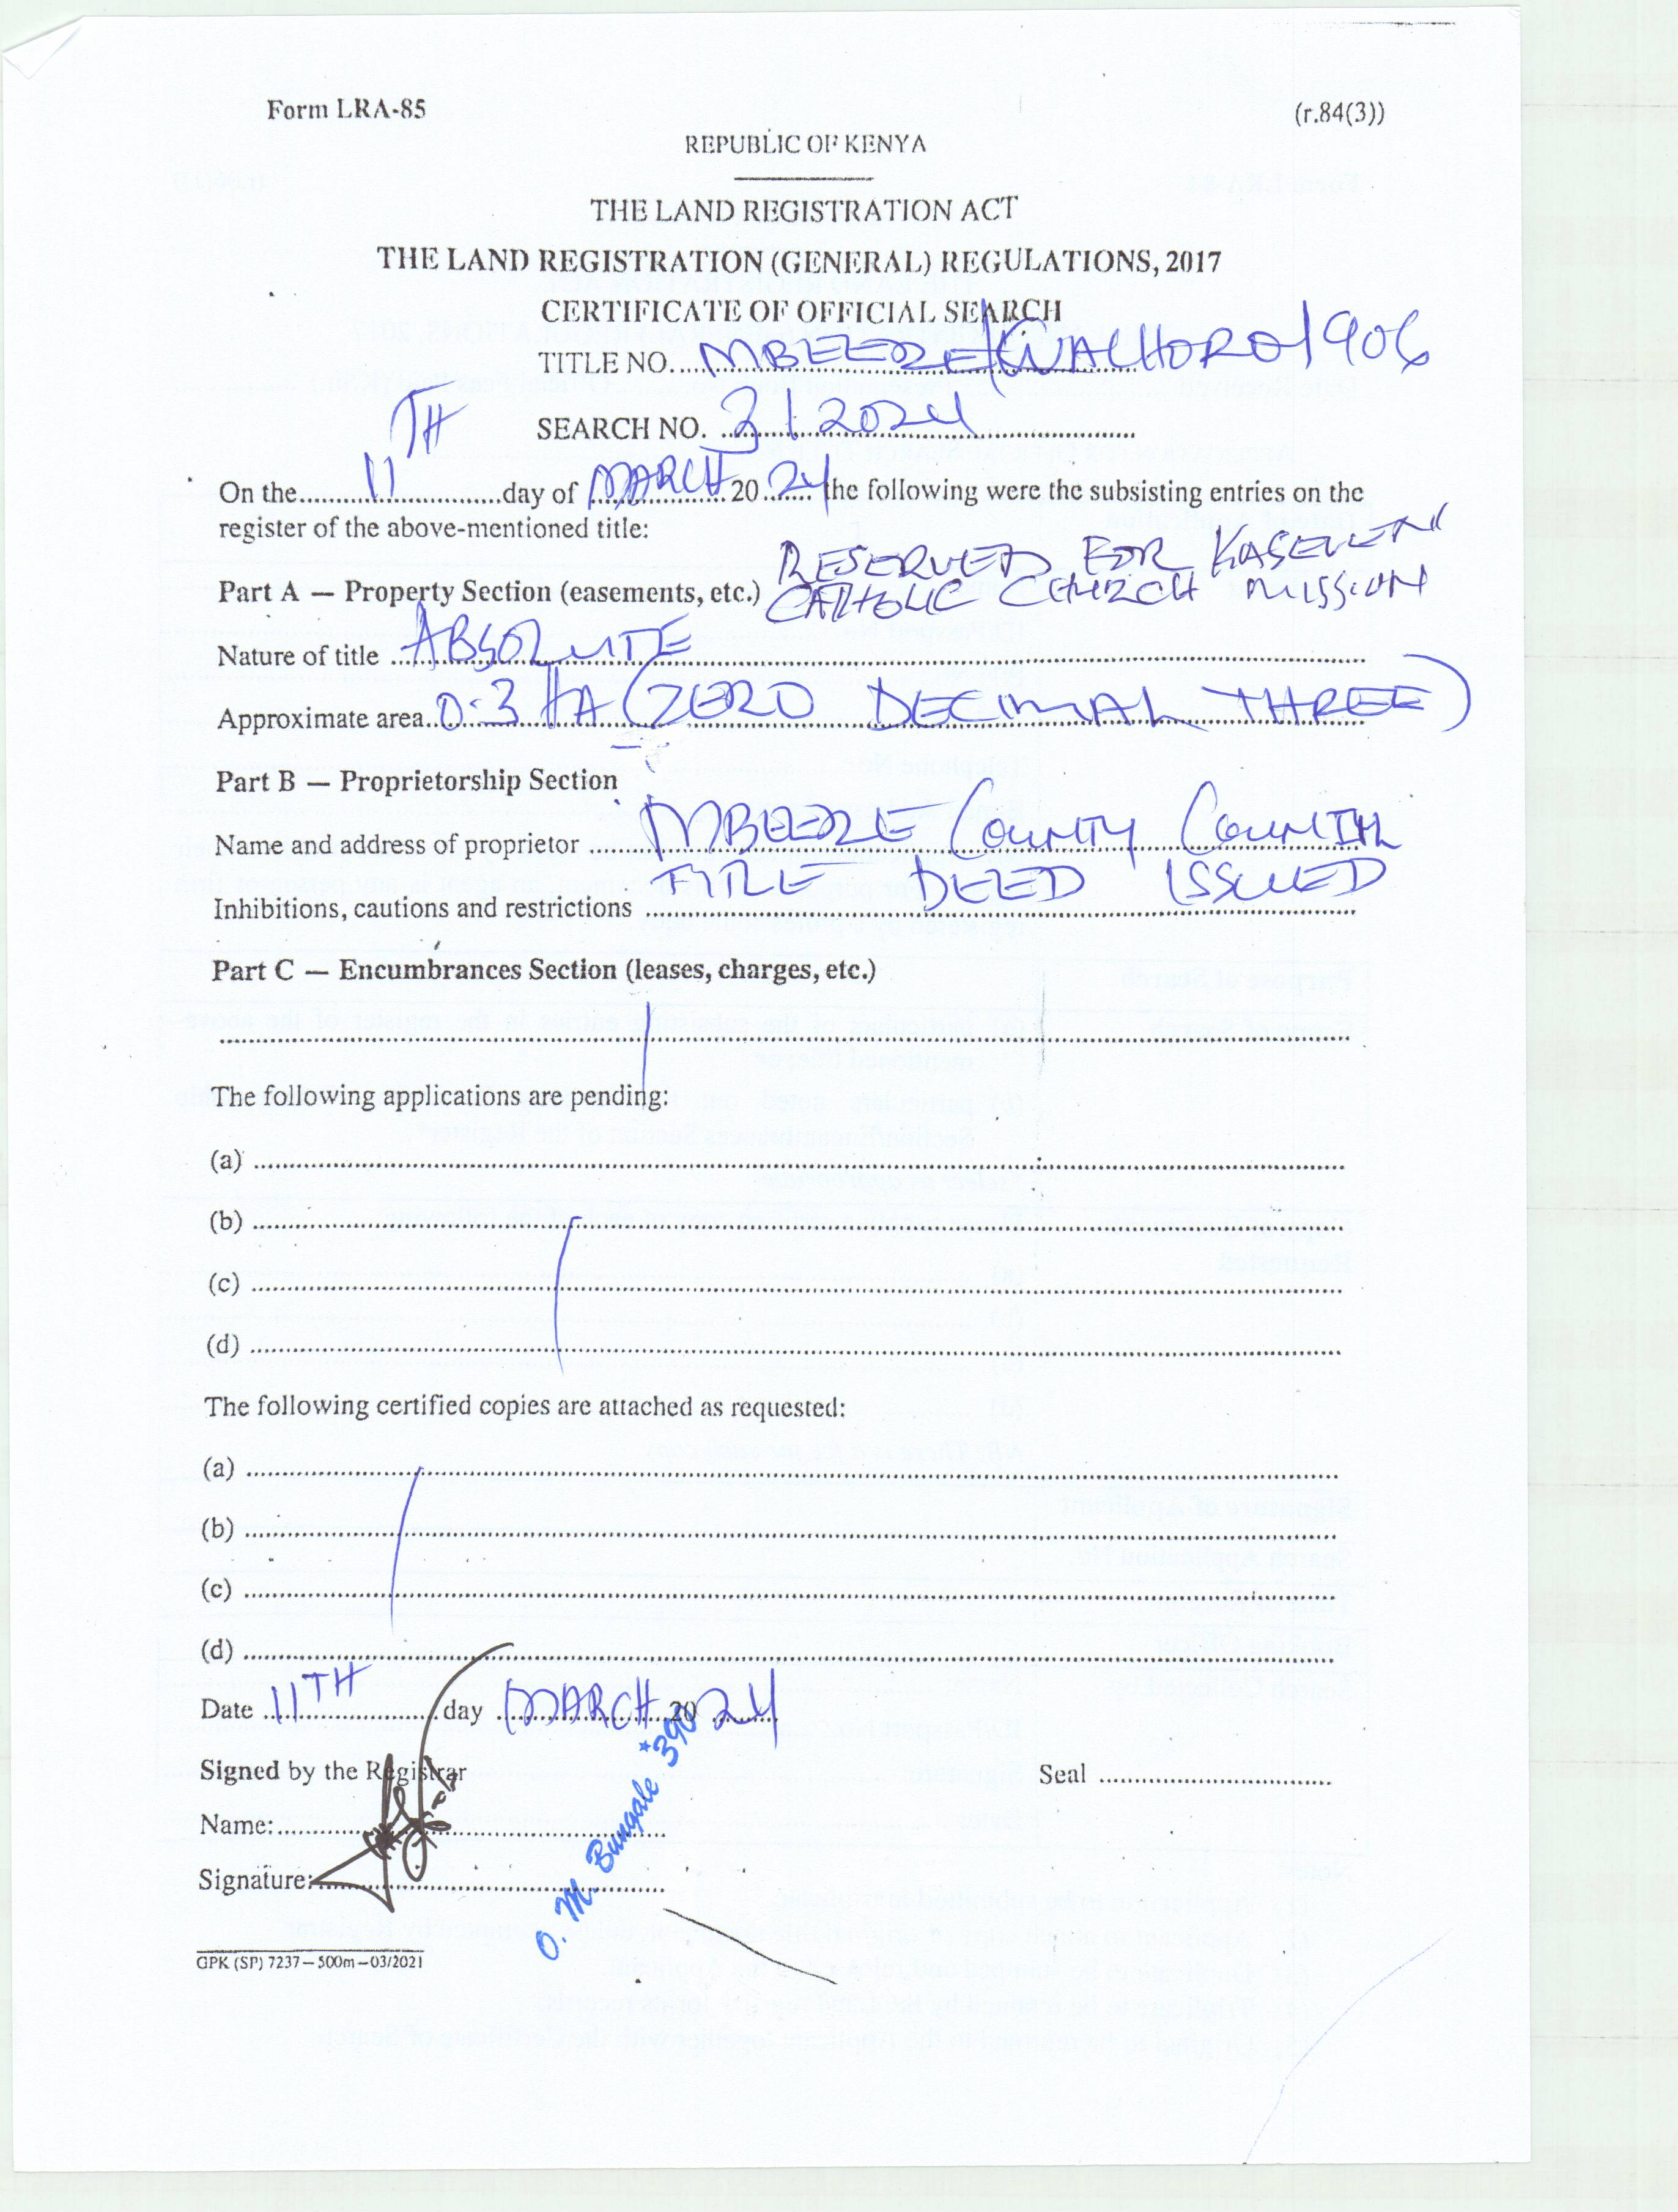 Form LRA-85
(r.84(3))
REPUBLIC OF KENYA
THE LAND REGISTRATION ACT
THE LAND REGISTRATION (GENERAL) REGULATIONS, 2017
CERTIFICATE OF OFFICIAL SEARCH
TITLE NO. MBEERE/GWACHORO/906
SEARCH NO. 3/2024
On the 11TH day of MARCH 2024 the following were the subsisting entries on the
register of the above-mentioned title:
RESERVED FOR KASEVENI
Part A — Property Section (easements, etc.) CATHOLIC CHURCH MISSION
Nature of title ABSOLUTE
Approximate area 0.3 HA (ZERO DECIMAL THREE)
Part B — Proprietorship Section
Name and address of proprietor MBEERE COUNTY COUNCIL
TITLE DEED ISSUED
Inhibitions, cautions and restrictions
Part C — Encumbrances Section (leases, charges, etc.)
The following applications are pending:
(a)
(b)
(c)
(d)
The following certified copies are attached as requested:
(a)
(b)
(c)
(d)
Date 11TH day MARCH 2024
Signed by the Registrar
Seal
Name:
Signature:
O. M. Bungale *390
GPK (SP) 7237—500m—03/2021